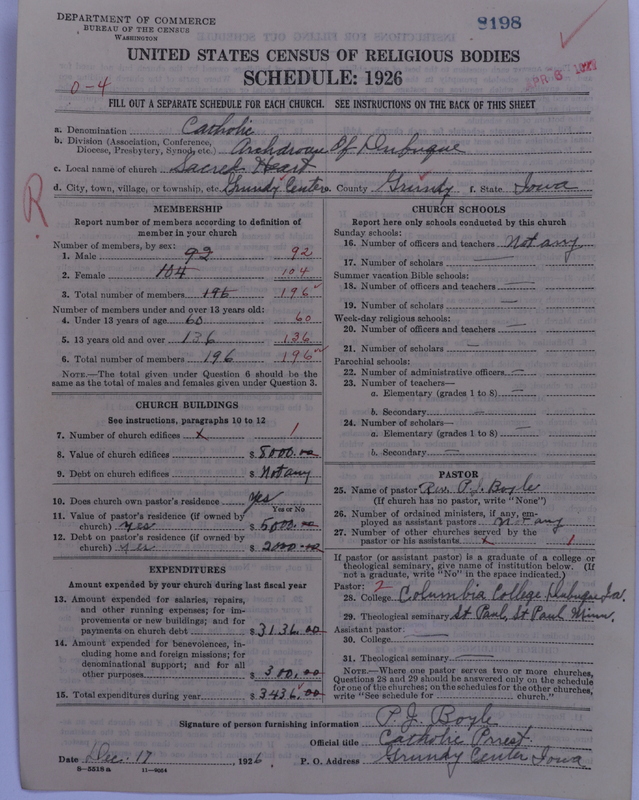 DEPARTMENT OF COMMERCE
BUREAU OF THE CENSUS
WASHINGTON
9198
APR 6 1927
UNITED STATES CENSUS OF RELIGIOUS BODIES
SCHEDULE: 1926
0-4
FILL OUT A SEPARATE SCHEDULE FOR EACH CHURCH. SEE INSTRUCTIONS ON THE BACK OF THIS SHEET
a. Denomination Catholic
b. Division (Association, Conference, Diocese, Presbytery, Synod, etc.) Archdiocese Of Dubuque
c. Local name of church Sacred Heart
d. City, town, village, or township, etc. Grundy Center e. County Grundy f. State Iowa
R
MEMBERSHIP
Report number of members according to definition of member in your church
Number of members, by sex:
1. Male 92 92
2. Female 104 104
3. Total number of members 196 196
Number of members under and over 13 years old:
4. Under 13 years of age 60 60
5. 13 years old and over 136 136
6. Total number of members 196 196
NOTE.—The total given under Question 6 should be the same as the total of males and females given under Question 3.
CHURCH BUILDINGS
See instructions, paragraphs 10 to 12
7. Number of church edifices x 1
8. Value of church edifices $ 8000.00
9. Debt on church edifices $ Not any
10. Does church own pastor's residence yes
Yes or No
11. Value of pastor's residence (if owned by church) yes $ 5000.00
12. Debt on pastor's residence (if owned by church) yes $ 2000.00
EXPENDITURES
Amount expended by your church during last fiscal year
13. Amount expended for salaries, repairs, and other running expenses; for improvements or new buildings; and for payments on church debt $ 3136.00
14. Amount expended for benevolences, including home and foreign missions; for denominational support; and for all other purposes $ 300.00
15. Total expenditures during year $ 3436.00
CHURCH SCHOOLS
Report here only schools conducted by this church
Sunday schools:
16. Number of officers and teachers Not any
17. Number of scholars —
Summer vacation Bible schools:
18. Number of officers and teachers —
19. Number of scholars —
Week-day religious schools:
20. Number of officers and teachers —
21. Number of scholars —
Parochial schools:
22. Number of administrative officers —
23. Number of teachers—
a. Elementary (grades 1 to 8) —
b. Secondary —
24. Number of scholars—
a. Elementary (grades 1 to 8) —
b. Secondary —
PASTOR
25. Name of pastor Rev. P. J. Boyle
(If church has no pastor, write "None")
26. Number of ordained ministers, if any, employed as assistant pastors Not any
27. Number of other churches served by the pastor or his assistants x 1
If pastor (or assistant pastor) is a graduate of a college or theological seminary, give name of institution below. (If not a graduate, write "No" in the space indicated.)
Pastor: 2
28. College Columbia College Dubuque Ia.
29. Theological seminary St Paul, St Paul Minn.
Assistant pastor:
30. College —
31. Theological seminary —
NOTE.—Where one pastor serves two or more churches, Questions 28 and 29 should be answered only on the schedule for one of the churches; on the schedules for the other churches, write "See schedule for church."
Signature of person furnishing information P. J. Boyle
Official title Catholic Priest.
Date Dec. 17, 1926 P. O. Address Grundy Center Iowa
8-5518 a 11-9054